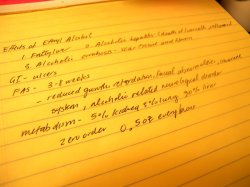 Effects of Ethyl Alcohol
1. Fatty liver 2. Alcoholic hepatitis (death of liver cells, inflammed
3. Alcoholic cirrhosis - scar tissue and fibrosis
GI - ulcers
FAS - 3-8 weeks
- reduced growth retardation, facial abnormalities, immune
system, alcoholic related neurological disorder
metabolism - 5% kidney 5% lung 90% liver
zero order 0.5 oz every hour